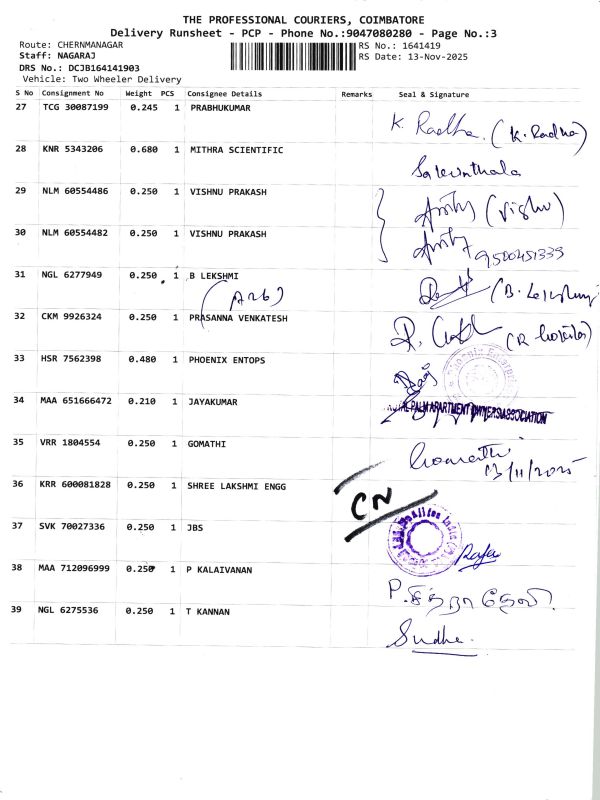 THE PROFESSIONAL COURIERS, COIMBATORE
Delivery Runsheet - PCP - Phone No.:9047080280 - Page No.:3
Route: CHERNMANAGAR
Staff: NAGARAJ
DRS No.: DCJB164141903
Vehicle: Two Wheeler Delivery
RS No.: 1641419
RS Date: 13-Nov-2025
S No Consignment No Weight PCS Consignee Details Remarks Seal & Signature
27 TCG 30087199 0.245 1 PRABHUKUMAR K. Radha. (K. Radha)
28 KNR 5343206 0.680 1 MITHRA SCIENTIFIC
29 NLM 60554486 0.250 1 VISHNU PRAKASH
30 NLM 60554482 0.250 1 VISHNU PRAKASH 9500451339
31 NGL 6277949 0.250 1 B LEKSHMI
(A26)
32 CKM 9926324 0.250 1 PRASANNA VENKATESH
33 HSR 7562398 0.480 1 PHOENIX ENTOPS
34 MAA 651666472 0.210 1 JAYAKUMAR PALM APARTMENT OWNERS ASSOCIATION
35 VRR 1804554 0.250 1 GOMATHI Gomathi
13/11/2025
36 KRR 600081828 0.250 1 SHREE LAKSHMI ENGG CN
37 SVK 70027336 0.250 1 JBS Raja
38 MAA 712096999 0.250 1 P KALAIVANAN
39 NGL 6275536 0.250 1 T KANNAN Sudha.